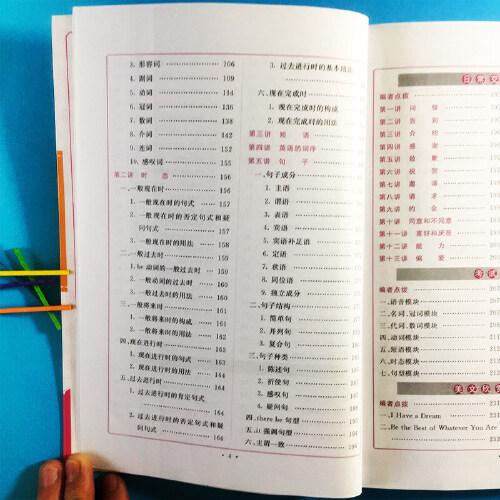 3. 形容词 …… 106
4. 副词 …… 109
5. 动词 …… 114
6. 冠词 …… 136
7. 数词 …… 138
8. 介词 …… 142
9. 连词 …… 152
10. 感叹词 …… 155
第二讲 时 态 …… 156
一、一般现在时 …… 156
1. 一般现在时的句式 …… 156
2. 一般现在时的否定句式和疑
问句式 …… 157
3. 一般现在时的用法 …… 158
二、一般过去时 ……
1. be 动词的一般过去时 ……
2. 一般动词的过去时 …… 160
3. 一般过去时的用法 …… 160
三、一般将来时 …… 161
1. 一般将来时的构成 ……
2. 一般将来时的用法 ……
四、现在进行时 …… 163
1. 现在进行时的句式 …… 163
2. 现在进行时的用法 …… 164
五、过去进行时 ……
1. 过去进行时的肯定句式
…… 165
2. 过去进行时的否定句式和疑
问句式 …… 166
3. 过去进行时的基本用法
六、现在完成时 ……
1. 现在完成时的构成
2. 现在完成时的用法
第三讲 短 语 ……
第四讲 英语的词序 ……
第五讲 句 子 ……
一、句子成分 ……
1. 主语 ……
2. 谓语 ……
3. 表语 ……
4. 宾语 ……
5. 宾语补足语 ……
6. 定语 ……
7. 状语 ……
8. 同位语 ……
9. 独立成分 ……
二、句子结构 ……
1. 简单句 ……
2. 并列句 ……
3. 复合句 ……
三、句子种类 ……
1. 陈述句 ……
2. 祈使句 ……
3. 感叹句 ……
4. 疑问句 ……
四、there be 句型 ……
五、it 强调句型 ……
六、主谓一致 ……
· 4 ·
日常交
编者点拨 ……
第一讲 问 候 ……
第二讲 告 别 ……
第三讲 介 绍 ……
第四讲 感 谢 ……
第五讲 致 歉 ……
第六讲 祝 贺 ……
第七讲 邀 请 ……
第八讲 请 求 ……
第九讲 约 会 ……
第十讲 同意和不同意
第十一讲 喜好和厌恶
第十二讲 能 力 ……
第十三讲 偏 爱 ……
考试
编者点拨 ……
一、语音模块 ……
二、名词、冠词模块 ……
三、代词、数词模块 ……
四、动词模块 ……
五、短语模块 ……
六、时态模块 ……
七、句型模块 ……
美文欣赏
编者点拨 ……
一、I Have a Dream ……
二、Be the Best of Whatever You Are